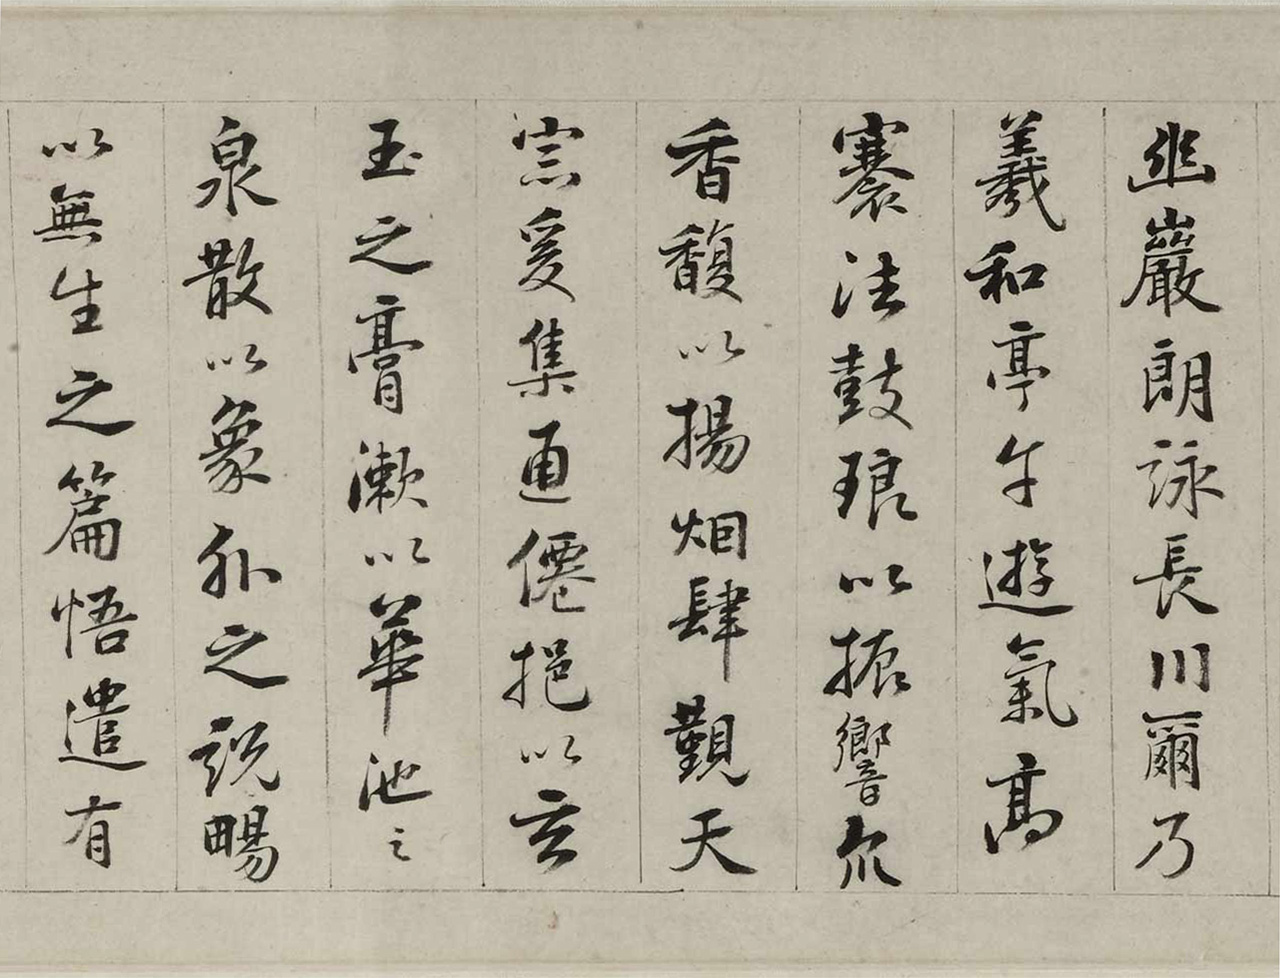 幽巖朗詠長川爾乃
羲和亭午遊氣高
褰法鼓琅以振響衆
香馥以揚烟肆覲天
宗爰集通僊挹以玄
玉之膏漱以華池之
泉散以象外之説暢
以無生之篇悟遣有